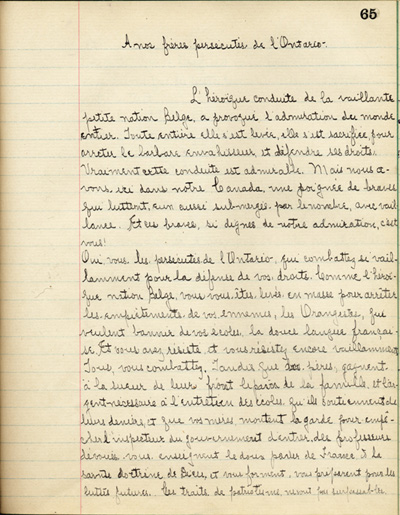 65
A nos frères persecutés de l'Ontario.
L'héroïque conduite de la vaillante
petite nation Belge, a provoqué l'admiration du monde
entier. Toute entière elle s'est levée, elle s'est sacrifiée pour
arrêter le barbare envahisseur et défendre ses droits.
Vraiment cette conduite est admirable. Mais nous a-
vons, ici dans notre Canada, une poignée de braves
qui luttent, eux aussi submergés par le nombre, avec vail
lance. Et ces braves, si dignes de notre admiration, c'est
vous!
Oui vous, les persecutés de l'Ontario, qui combattez si vail-
lamment pour la défense de vos droits. Comme l'heroï-
que nation Belge, vous vous êtes levés en masse pour arrêter
les empiètements de vos ennemis, les Orangistes, qui
veulent bannir de vos écoles, la douce langue françai-
se. Et vous avez résisté et vous résistez encore vaillamment
Tous, vous combattez. Tandis que les pères, gagnent
à la sueur de leur front le pain de la famille, et l'ar-
gent necessaire à l'entretien des écoles, qu'ils soutiennent de
leurs deniers, et que vos mères, montent la garde pour empê-
cher l'inspecteur du gouvernement d'entrer, des professeurs
devoués, vous enseignent le doux parler de France, & la
sainte doctrine de Dieu, et vous forment, vous préparent pour les
luttes futures. Ces traits de patriotisme, seront